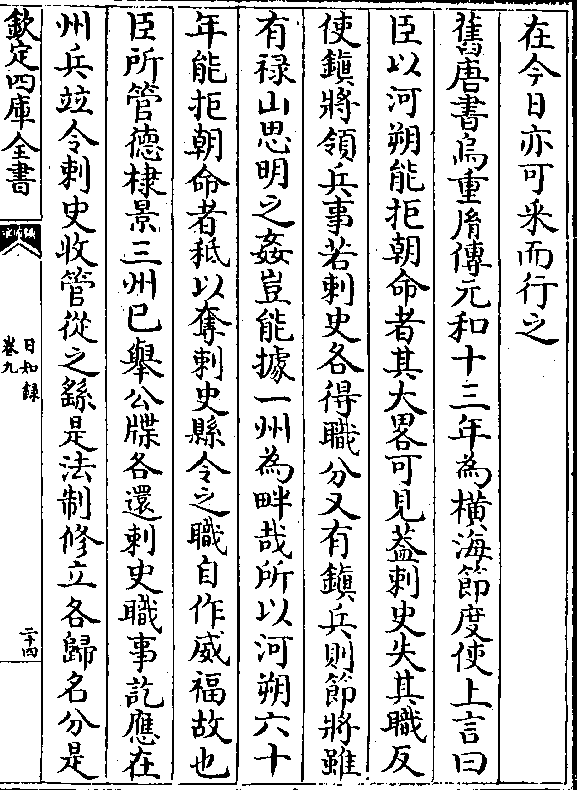 在今日亦可采而行之
舊唐書烏重𦙍傳元和十三年為橫海節度使上言曰
臣以河朔能拒朝命者其大畧可見葢刺史失其職反
使鎮將領兵事若刺史各得職分又有鎮兵則節將雖
有祿山思明之姦豈能據一州為畔哉所以河朔六十
年能拒朝命者秪以奪刺史縣令之職自作威福故也
臣所管德棣景三州已舉公牒各還刺史職事訖應在
州兵竝令刺史收管從之繇是法制修立各歸名分是
欽定四庫全書
日知錄
卷九
二十四